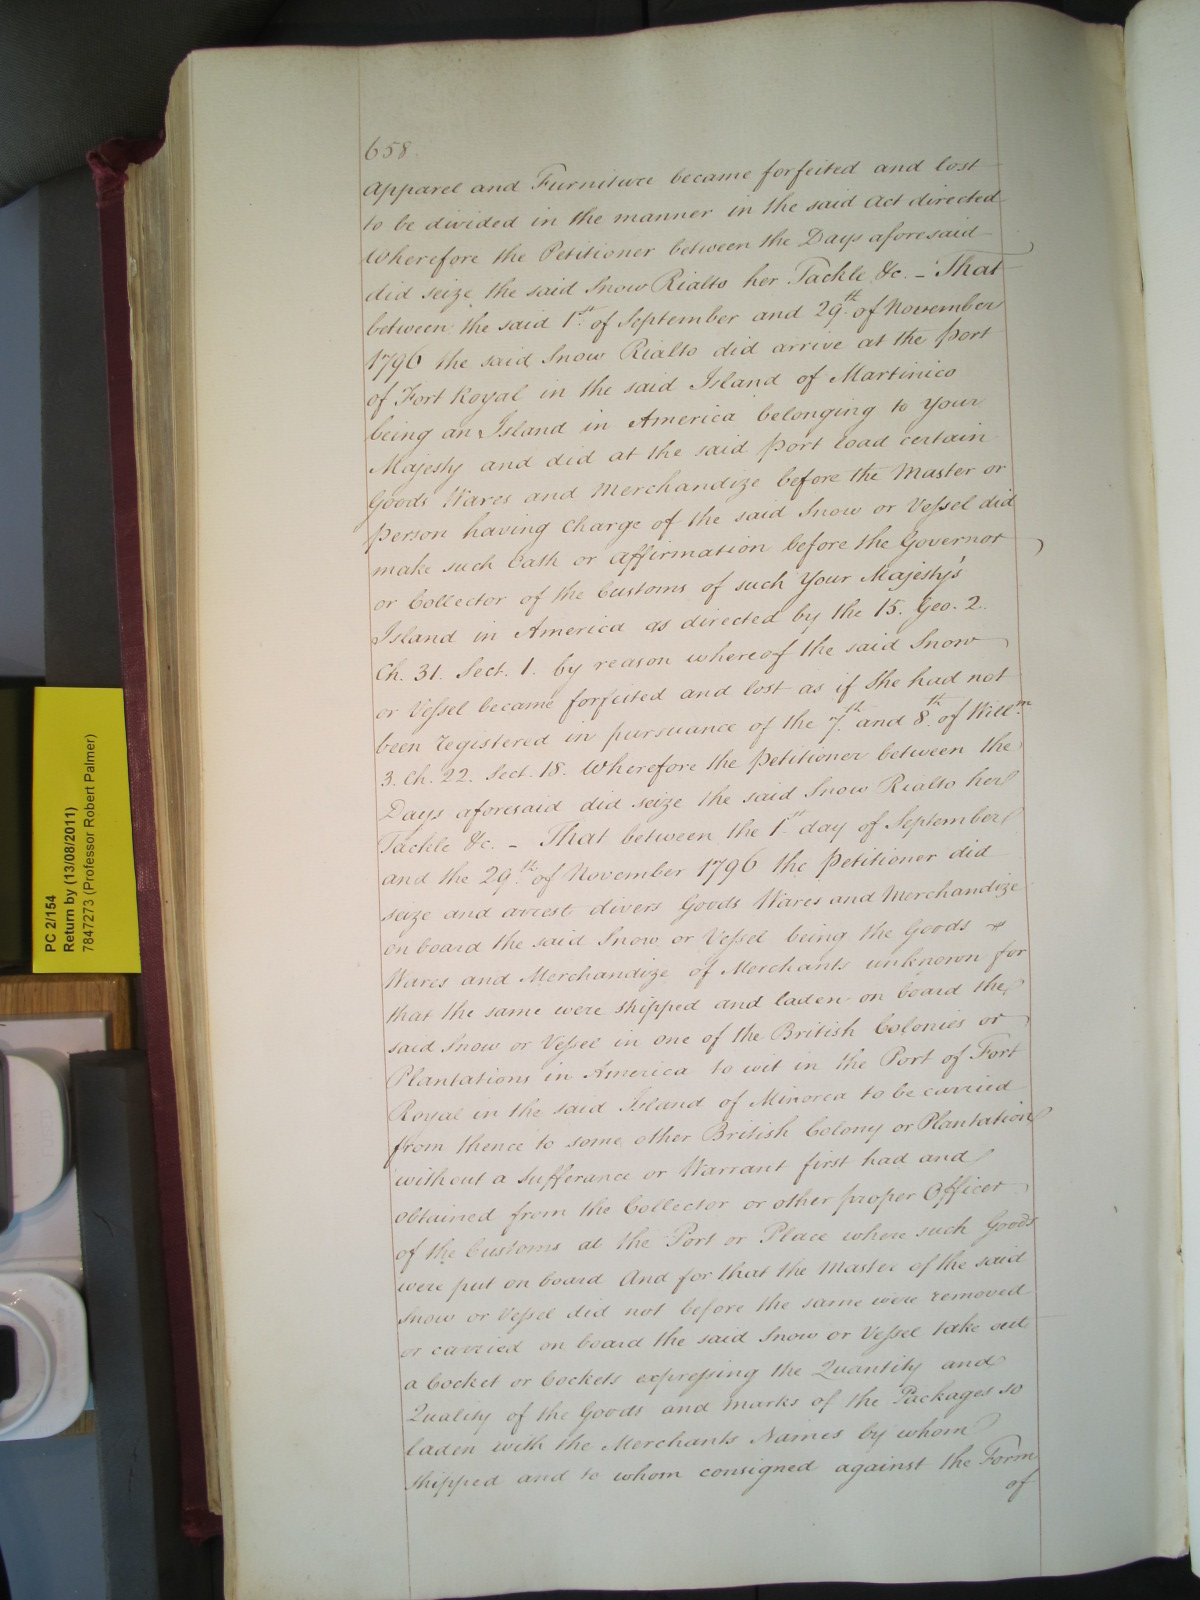 658.
Apparel and Furniture became forfeited and lost
to be divided in the manner in the said Act directed
Wherefore the Petitioner between the Days aforesaid
did seize the said Snow Rialto her Tackle &c. – That
between the said 1st. of September and 29th. of November
1796 the said Snow Rialto did arrive at the Port
of Fort Royal in the said Island of Martinico
being an Island in America belonging to Your
Majesty and did at the said Port load certain
Goods Wares and Merchandize before the Master or
Person having Charge of the said Snow or Vessel did
make such Oath or Affirmation before the Governor
or Collector of the Customs of such Your Majesty's
Island in America as directed by the 15. Geo. 2.
Ch. 31. Sect. 1. by reason whereof the said Snow
or Vessel became forfeited and lost as if She had not
been registered in pursuance of the 7th. and 8th. of Willm.
3. Ch. 22. Sect. 18. Wherefore the Petitioner between the
Days aforesaid did seize the said Snow Rialto her
Tackle &c. – That between the 1st. day of September
and the 29th. of November 1796 the Petitioner did
seize and arrest divers Goods Wares and Merchandize
on board the said Snow or Vessel being the Goods &
Wares and Merchandize of Merchants unknown for
that the same were shipped and laden on board the
said Snow or Vessel in one of the British Colonies or
Plantations in America to wit in the Port of Fort
Royal in the said Island of Minorca to be carried
from thence to some other British Colony or Plantation
without a Sufferance or Warrant first had and
obtained from the Collector or other proper Officer
of the Customs at the Port or Place where such Goods
were put on board And for that the Master of the said
Snow or Vessel did not before the same were removed
or carried on board the said Snow or Vessel take out
a Cocket or Cockets expressing the Quantity and
Quality of the Goods and Marks of the Packages so
laden with the Merchants Names by whom
shipped and to whom consigned against the Form
of
PC 2/154
Return by (13/08/2011)
7847273 (Professor Robert Palmer)